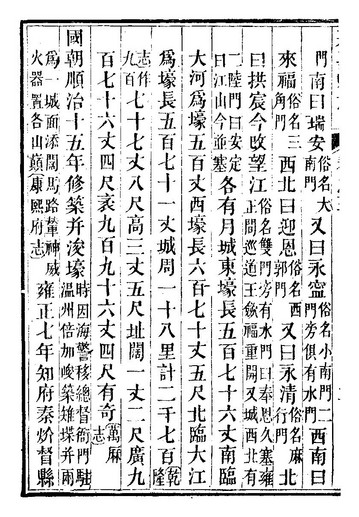 門南曰瑞安俗名大南門又曰永寧俗名小南門二門旁俱有水門西南曰
來福俗名三角門西北曰迎恩俗名西郭門又曰永清俗名麻行門北
曰拱宸今改望江俗名雙門旁有水門曰奉恩久塞雍正間巡道王斂福重開又城西北有
二陸門曰安定曰江山今並塞各有月城東壕長五百七十六丈南臨
大河爲壕五百丈西壕長六百七十丈五尺北臨大江
爲壕長五百七十一丈城周一十八里計二千七百乾隆
志作九百七十七丈八尺高三丈五尺址闊一丈二尺廣九
百七十六丈四尺袤九百九十六丈四尺有奇萬厤志
國朝順治十五年修築并浚壕時因海警移總督衙門駐溫州倍加峻築雉堞并兩
爲一城面添闊馬路輦神威火器置各山巔康熙府志雍正七年知府秦炌督縣